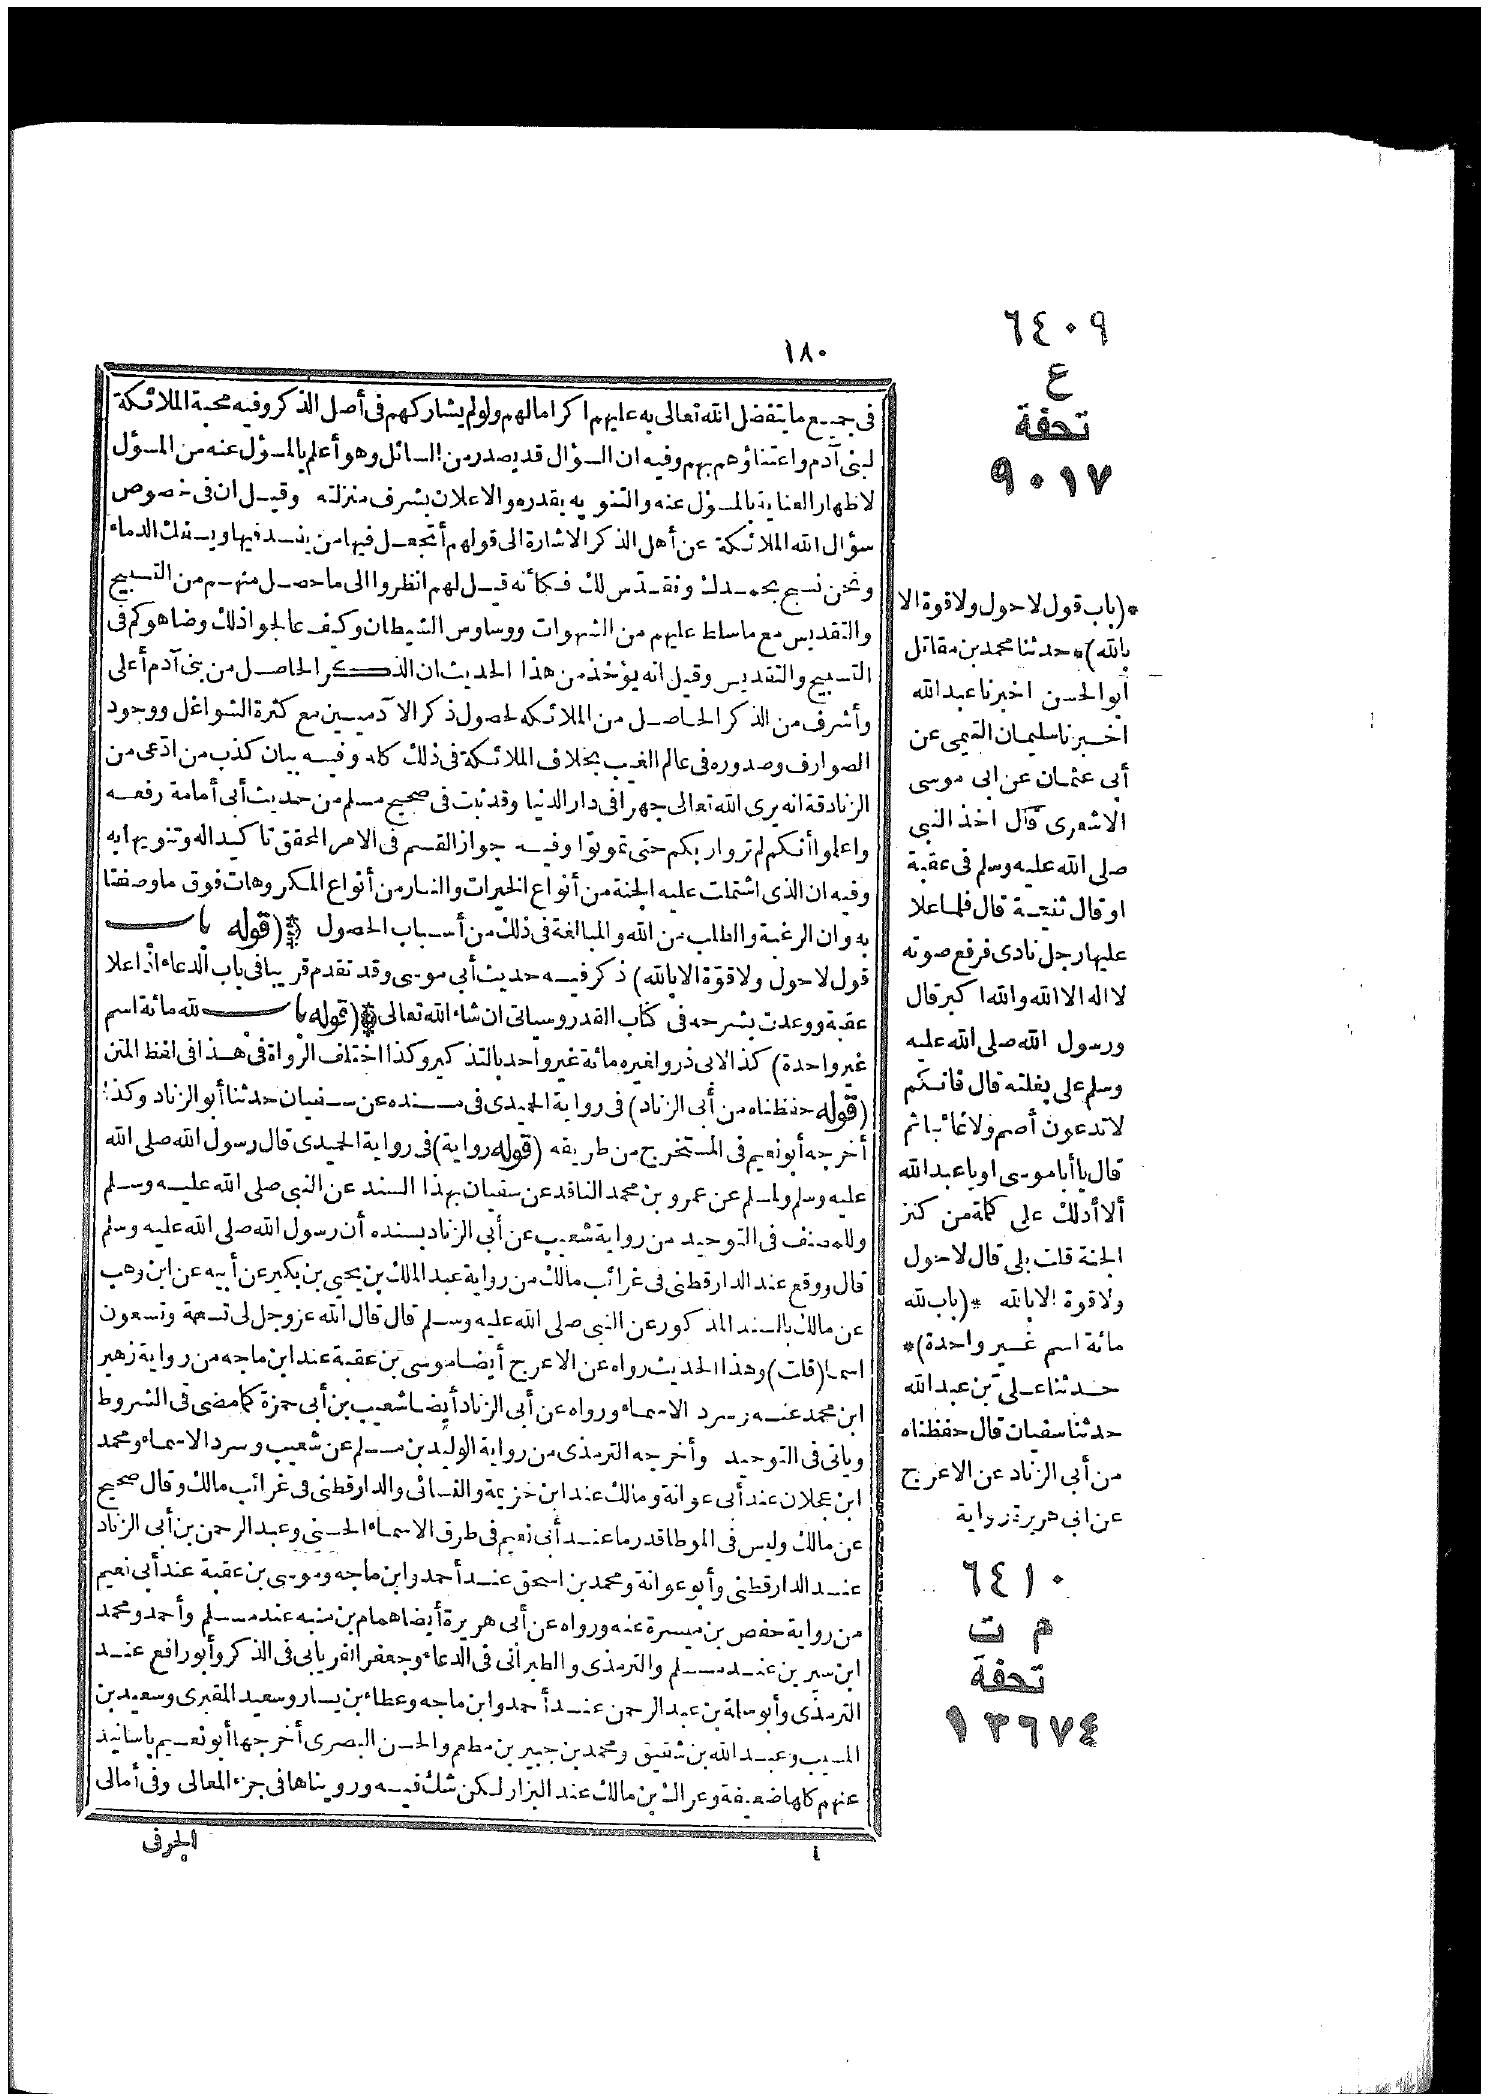 ١٨٠
في جميع ما يتفضل الله تعالى به عليهم اكرا مالهم ولو لم يشاركهم في أصل الذكر وفيه محبة الملائكة
لبنى آدم واعتناؤهم بهم وفيه ان السؤال قد يصدر من السائل وهو أعلم بالمسؤل عنه من المسؤل
لاظهار العناية بالمسؤل عنه والتنويه بقدره والاعلان بشرف منزلته وقيل ان في خصوص
سؤال الله الملائكة عن أهل الذكر الاشارة الى قولهم أتجعل فيها من يفسد فيها ويسفك الدماء
ونحن نسبح بحمدك ونقدس لك فكأنه قيل لهم انظروا الى ما حصل منهم من التسبيح
والتقديس مع ما سلط عليهم من الشهوات ووساوس الشيطان وكيف عالجوا ذلك وضاهوكم في
التسبيح والتقديس وقيل انه يؤخذ من هذا الحديث ان الذكر الحاصل من بنى آدم أعلى
وأشرف من الذكر الحاصل من الملائكة لحصول ذكر الآدميين مع كثرة الشواغل ووجود
الصوارف وصدوره في عالم الغيب بخلاف الملائكة في ذلك كله وفيه بيان كذب من ادعى من
الزنادقة انه يرى الله تعالى جهرا في دار الدنيا وقد ثبت في صحيح مسلم من حديث أبى أمامة رفعه
واعلموا أنكم لم تروا ربكم حتى تموتوا وفيه جواز القسم في الامر المحقق تأكيدا له وتنويها به
وفيه ان الذى اشتملت عليه الجنة من أنواع الخيرات والنار من أنواع المكروهات فوق ما وصفتا
به وان الرغبة والطلب من الله والمبالغة في ذلك من أسباب الحصول ❊ (قوله باب
قول لاحول ولا قوة الا بالله) ذكر فيه حديث أبى موسى وقد تقدم قريبا في باب الدعاء اذا علا
عقبة ووعدت بشرحه في كتاب القدر وسيأتي ان شاء الله تعالى ❊ (قوله باب لله مائة اسم
غير واحدة) كذا لابى ذر ولغيره مائة غير واحد بالتذكير وكذا اختلف الرواة في هذا في لفظ المتن
(قوله حفظناه من أبى الزناد) في رواية الحميدى في مسنده عن سفيان حدثنا أبو الزناد وكذا
أخرجه أبو نعيم في المستخرج من طريقه (قوله رواية) في رواية الحميدى قال رسول الله صلى الله
عليه وسلم ولمسلم عن عمرو بن محمد الناقد عن سفيان بهذا السند عن النبي صلى الله عليه وسلم
وللمصنف في التوحيد من رواية شعيب عن أبى الزناد بسنده أن رسول الله صلى الله عليه وسلم
قال ووقع عند الدارقطنى في غرائب مالك من رواية عبد الملك بن يحيى بن بكير عن أبيه عن ابن وهب
عن مالك بالسند المذكور عن النبي صلى الله عليه وسلم قال قال الله عز وجل لى تسعة وتسعون
اسما (قلت) وهذا الحديث رواه عن الاعرج أيضا موسى بن عقبة عند ابن ماجه من رواية زهير
ابن محمد عنه وسرد الاسماء ورواه عن أبى الزناد أيضا شعيب بن أبى حمزة كما مضى في الشروط
ويأتى في التوحيد وأخرجه الترمذى من رواية الوليد بن مسلم عن شعيب وسرد الاسماء ومحمد
ابن عجلان عند أبى عوانة ومالك عند ابن خزيمة والنسائى والدارقطنى في غرائب مالك وقال صحيح
عن مالك وليس في الموطا قدر ما عند أبى نعيم في طرق الاسماء الحسنى وعبد الرحمن بن أبى الزناد
عند الدارقطنى وأبو عوانة ومحمد بن اسحق عند أحمد وابن ماجه وموسى بن عقبة عند أبى نعيم
من رواية حفص بن ميسرة عنه ورواه عن أبى هريرة أيضا همام بن منبه عند مسلم وأحمد ومحمد
ابن سيرين عند مسلم والترمذى والطبرانى في الدعاء وجعفر الفريابى في الذكر وأبو رافع عند
الترمذى وأبو سلمة بن عبد الرحمن عند أحمد وابن ماجه وعطاء بن يسار وسعيد المقبرى وسعيد بن
المسيب وعبد الله بن شقيق ومحمد بن جبير بن مطعم والحسن البصرى أخرجها أبو نعيم بأسانيد
عنهم كلها ضعيفة وعراك بن مالك عند البزار لكن شك فيه ورويناها في جزء المعالى وفى أمالى
الجرفى
٦٤٠٩
ع
تحفة
٩٠١٧
*(باب قول لا حول ولا قوة الا
بالله)* حدثنا محمد بن مقاتل
أبو الحسن اخبرنا عبد الله
اخبرنا سليمان التيمى عن
أبى عثمان عن ابى موسى
الاشعرى قال اخذ النبي
صلى الله عليه وسلم في عقبة
او قال ثنية قال فلما علا
عليها رجل نادى فرفع صوته
لا اله الا الله والله اكبر قال
ورسول الله صلى الله عليه
وسلم على بغلته قال فانكم
لا تدعون أصم ولا غائبا ثم
قال يا أبا موسى او يا عبد الله
ألا أدلك على كلمة من كنز
الجنة قلت بلى قال لا حول
ولا قوة الا بالله *(باب لله
مائة اسم غير واحدة)*
حدثنا على بن عبد الله
حدثنا سفيان قال حفظناه
من أبى الزناد عن الاعرج
عن ابى هريرة رواية
٦٤١٠
م ت
تحفة
١٣٦٧٤